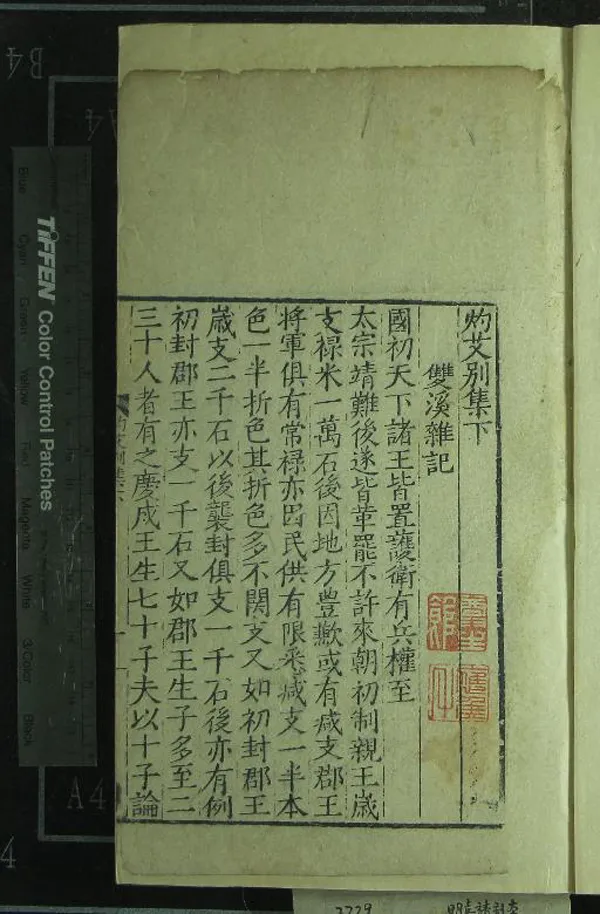 灼艾别集下
雙溪雜記
國初天下諸王皆置護衛有兵權至
太宗靖難後遂皆革罷不許來朝初制親王歲
支禄米一萬石後因地方豊歉或有减支郡王
將軍俱有常禄亦因民供有限悉减支一半本
色一半折色其折色多不関支又如初封郡王
歲支二千石以後襲封俱支一千石後亦有例
初封郡王亦支一千石又如郡王生子多至二
三十人者有之慶成王生七十子夫以十子論
TIFFEN Color Control Patches
Blue
Cyan
Green
Yellow
Red
Magenta
White
3/Color
Black
B4
A4
A4
4